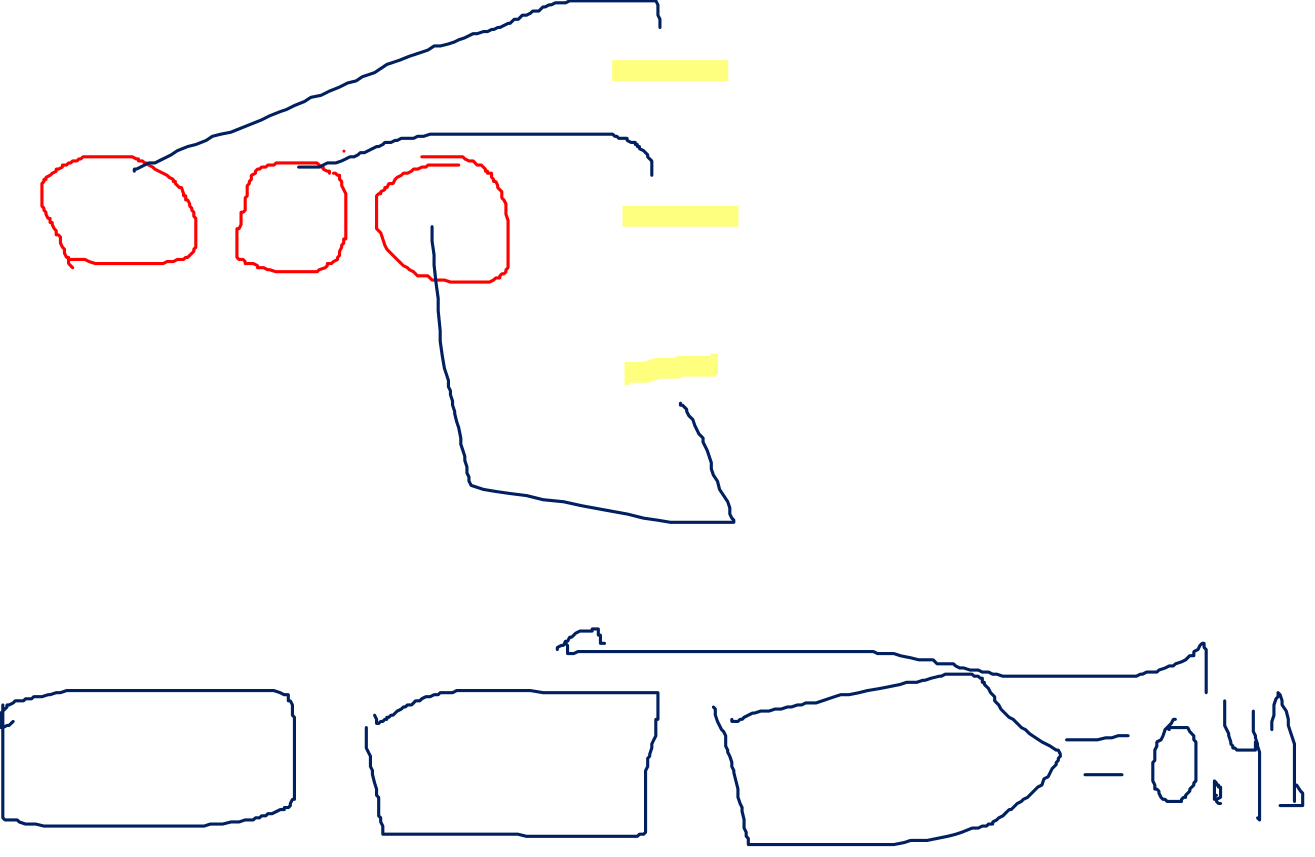 = 0.41